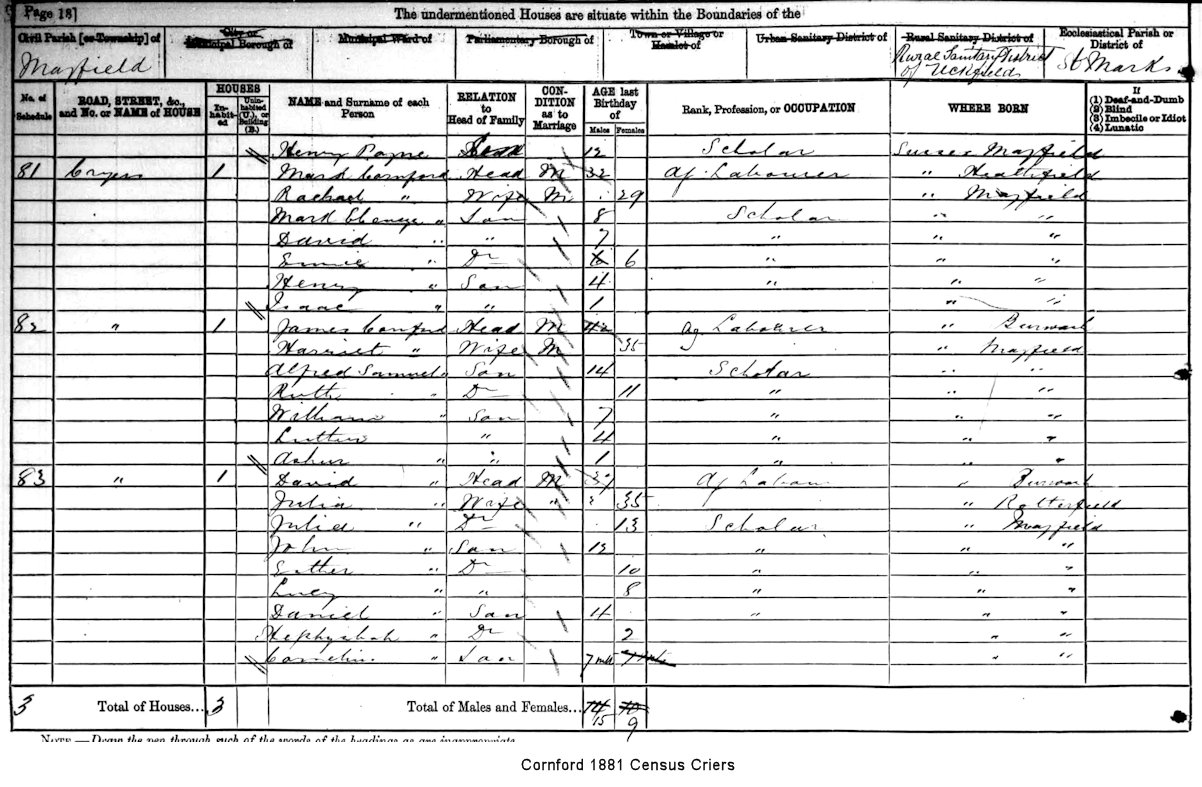 Page 18]
The undermentioned Houses are situate within the Boundaries of the
Civil Parish [or Township] of
City or Municipal Borough of
Municipal Ward of
Parliamentary Borough of
Town or Village or Hamlet of
Urban Sanitary District of
Rural Sanitary District of
Ecclesiastical Parish or District of
Mayfield
Rural Sanitary District of Uckfield
St Marks
No. of Schedule
ROAD, STREET, &c., and No. or NAME of HOUSE
HOUSES
In-habit-ed
Unin-habited (U.), or Building (B.)
NAME and Surname of each Person
RELATION to Head of Family
CON-DITION as to Marriage
AGE last Birthday of
Males
Females
Rank, Profession, or OCCUPATION
WHERE BORN
If
(1) Deaf-and-Dumb
(2) Blind
(3) Imbecile or Idiot
(4) Lunatic
Henry Payne 12 Scholar Sussex Mayfield
81 Cryers 1 Mark Cornford Head M 32 Ag. Labourer " Heathfield
Rachael " Wife M 29 " Mayfield
Mark Ebeneze " Son 8 Scholar " "
David " " 7 " " "
" Dr 6 " " "
Henry " Son 4 " "
Isaac " " 1 " "
82 " 1 James Cornford Head M 42 Ag Labourer " Burwash
Harriet " Wife M 35 " Mayfield
Alfred Samuel " Son 14 Scholar " "
Ruth " Dr 11 " " "
William " Son 7 " " "
Luther " 4 " " "
Ashur " " 1 " " "
83 " 1 David Head M 37 Ag Labour " Burwash
Julia " Wife " 35 " Rotterfield
Julia " Dr 13 Scholar " Mayfield
John " Son 12 " " "
Esther " Dr 10 " " "
Lucy " " 8 " " "
Daniel " Son 4 " " "
Hephzibah " Dr 2 " "
" Son 7 mths " "
3 Total of Houses... 3 Total of Males and Females... 14 10
15 9
NOTE.—Draw the pen through such of the words of the headings as are inappropriate.
Cornford 1881 Census Criers